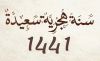 سَنَة هِجْرِيَّة سَعِيْدَةٌ
1441